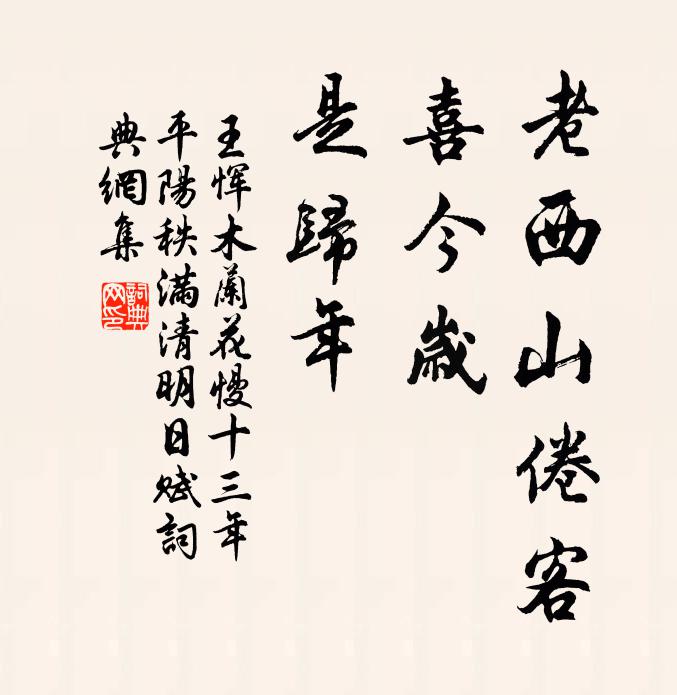 老西山倦客
喜今歲
是歸年
王惲木蘭花慢十三年
平陽秩滿清明日賦詞
典網集
詞典網印